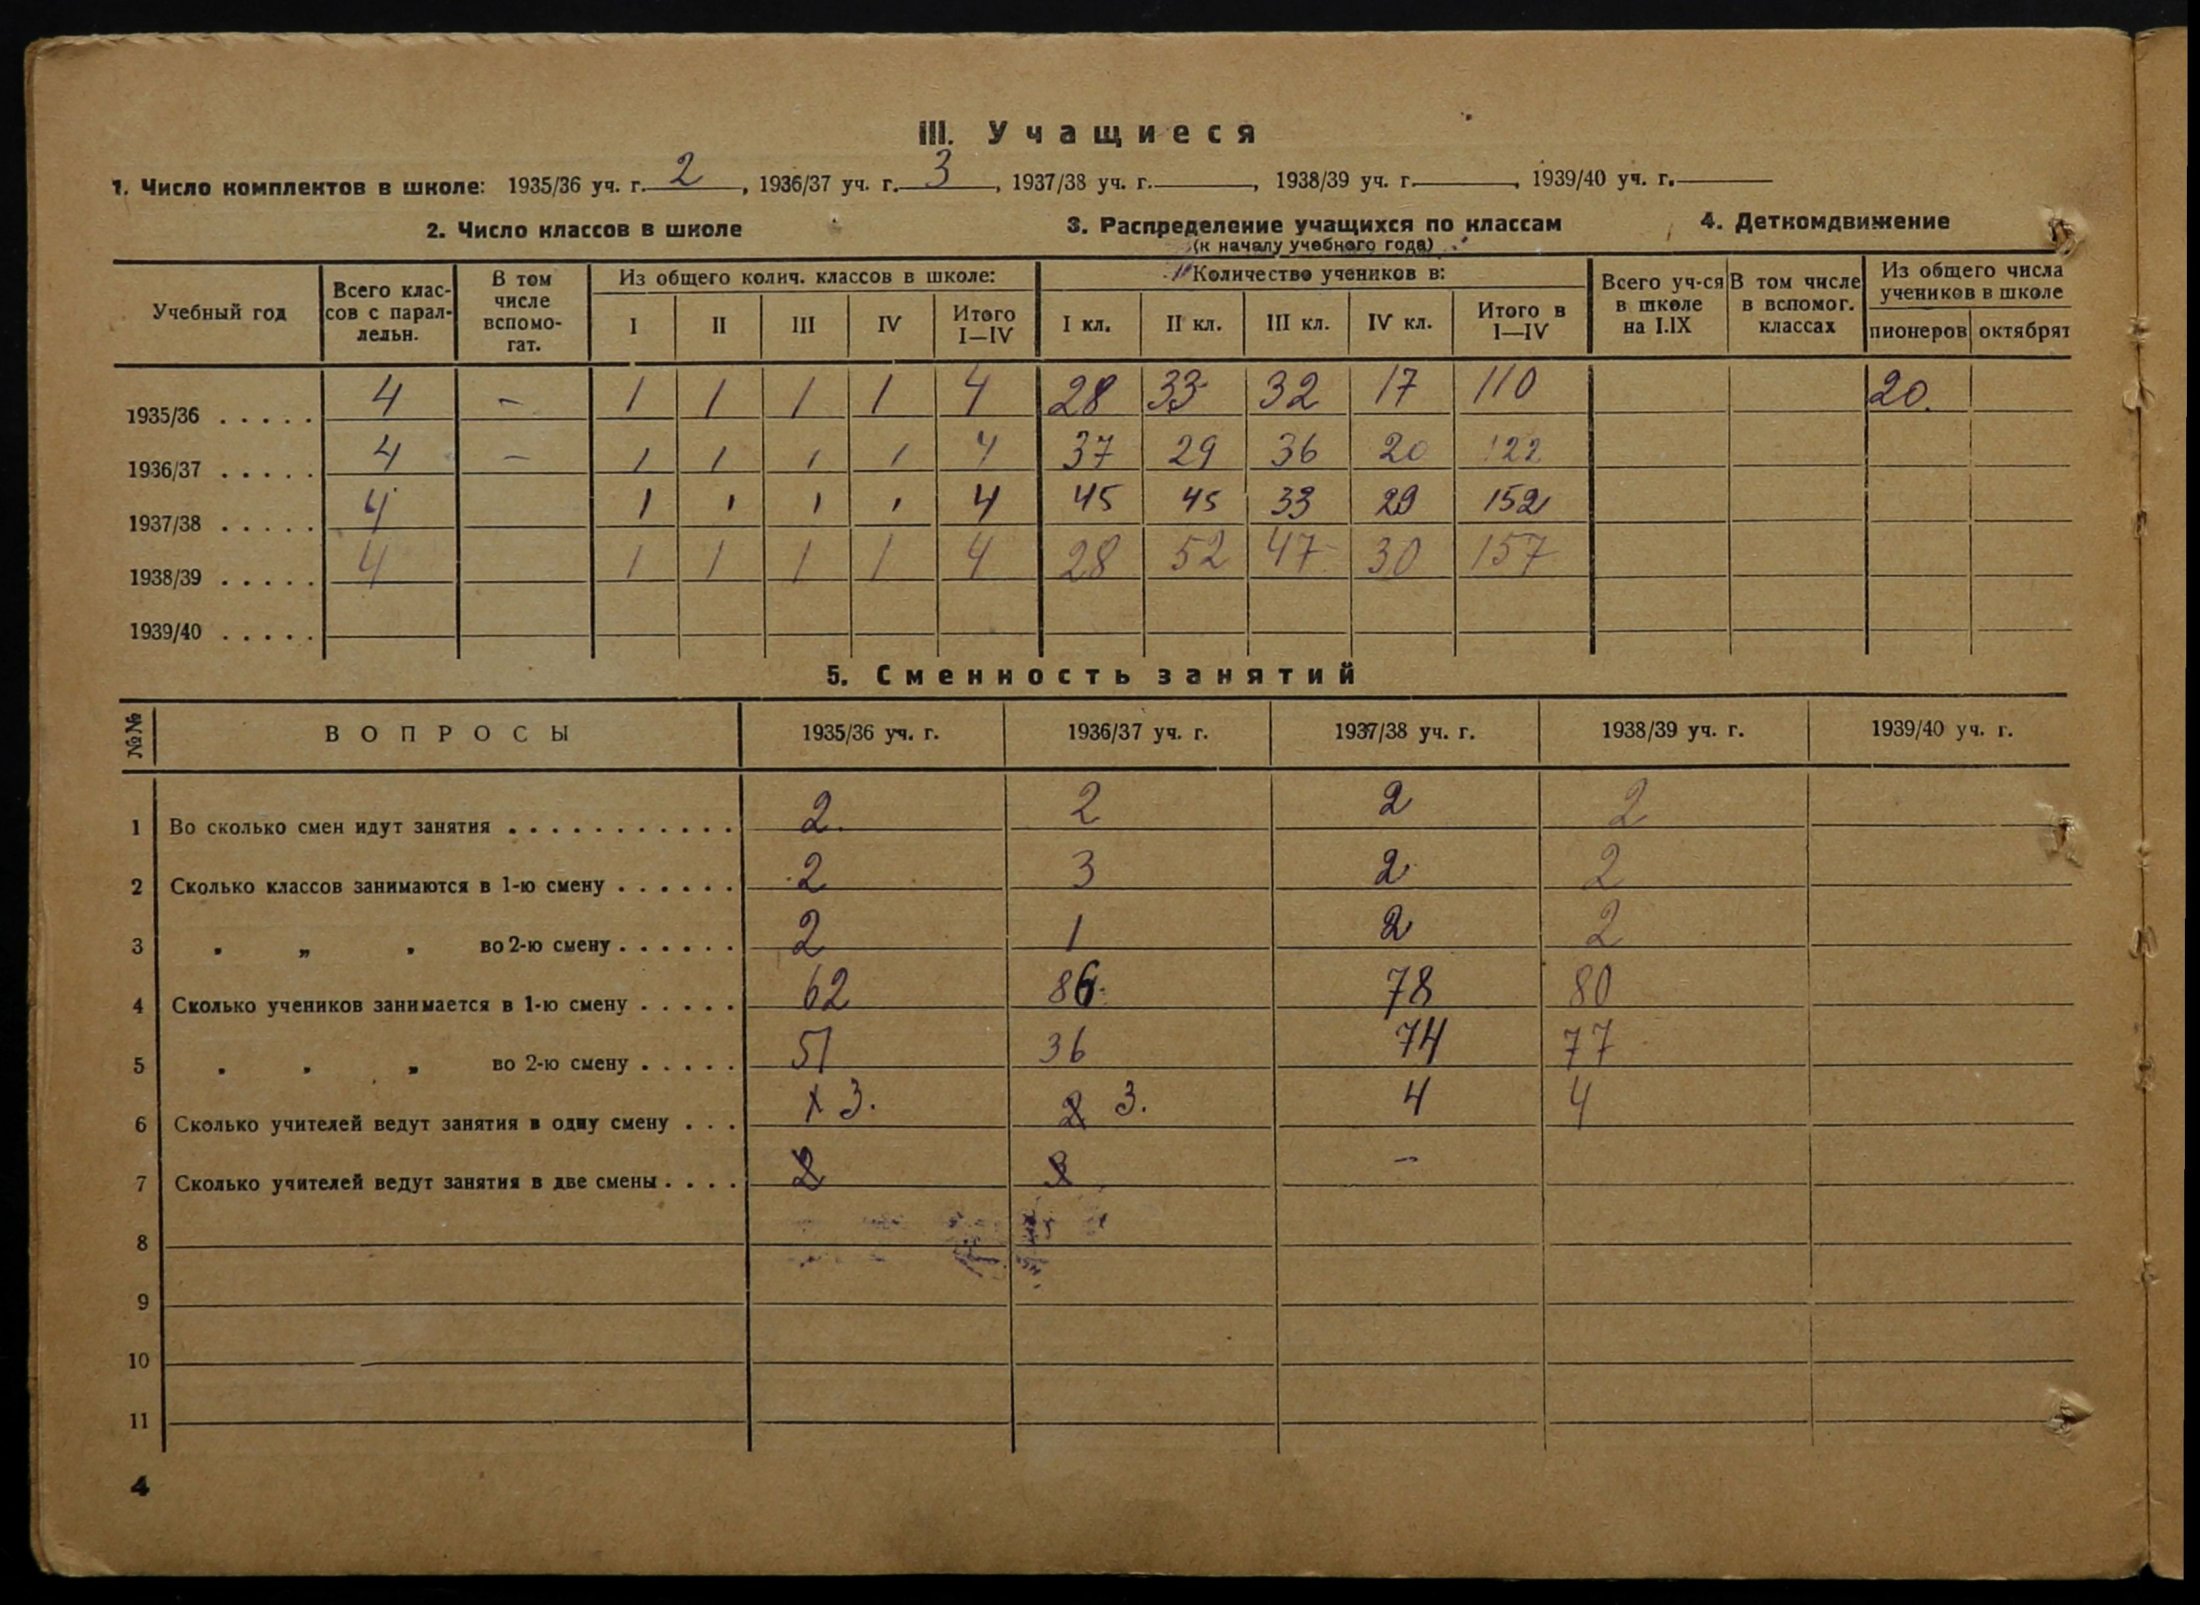 III. Учащиеся
1. Число комплектов в школе: 1935/36 уч. г. 2, 1936/37 уч. г. 3, 1937/38 уч. г. , 1938/39 уч. г , 1939/40 уч. г.
2. Число классов в школе 3. Распределение учащихся по классам 4. Деткомдвижение
(к началу учебного года)
Учебный год Всего клас-сов с парал-лельн. В том числе вспомо-гат. Из общего колич. классов в школе: Количество учеников в: Всего уч-ся в школе на I.IX В том числе в вспомог. классах Из общего числа учеников в школе
I II III IV Итого I—IV I кл. II кл. III кл. IV кл. Итого в I—IV пионеров октябрят
1935/36 . . . . . 4 - 1 1 1 1 4 28 33 32 17 110 20.
1936/37 . . . . . 4 - 1 1 1 1 4 37 29 36 20 122
1937/38 . . . . . 4 1 1 1 1 4 45 45 33 29 152
1938/39 . . . . . 4 1 1 1 1 4 28 52 47 30 157
1939/40 . . . . .
5. Сменность занятий
№№ ВОПРОСЫ 1935/36 уч. г. 1936/37 уч. г. 1937/38 уч. г. 1938/39 уч. г. 1939/40 уч. г.
1 Во сколько смен идут занятия . . . . . . . . . . . 2 2 2 2
2 Сколько классов занимаются в 1-ю смену . . . . . . 2 3 2 2
3 „ „ „ во 2-ю смену . . . . . . 2 1 2 2
4 Сколько учеников занимается в 1-ю смену . . . . . 62 86 78 80
5 „ „ „ во 2-ю смену . . . . . 51 36 74 77
6 Сколько учителей ведут занятия в одну смену . . . 3. 2 3. 4 4
7 Сколько учителей ведут занятия в две смены . . . . 2 -
8
9
10
11
4